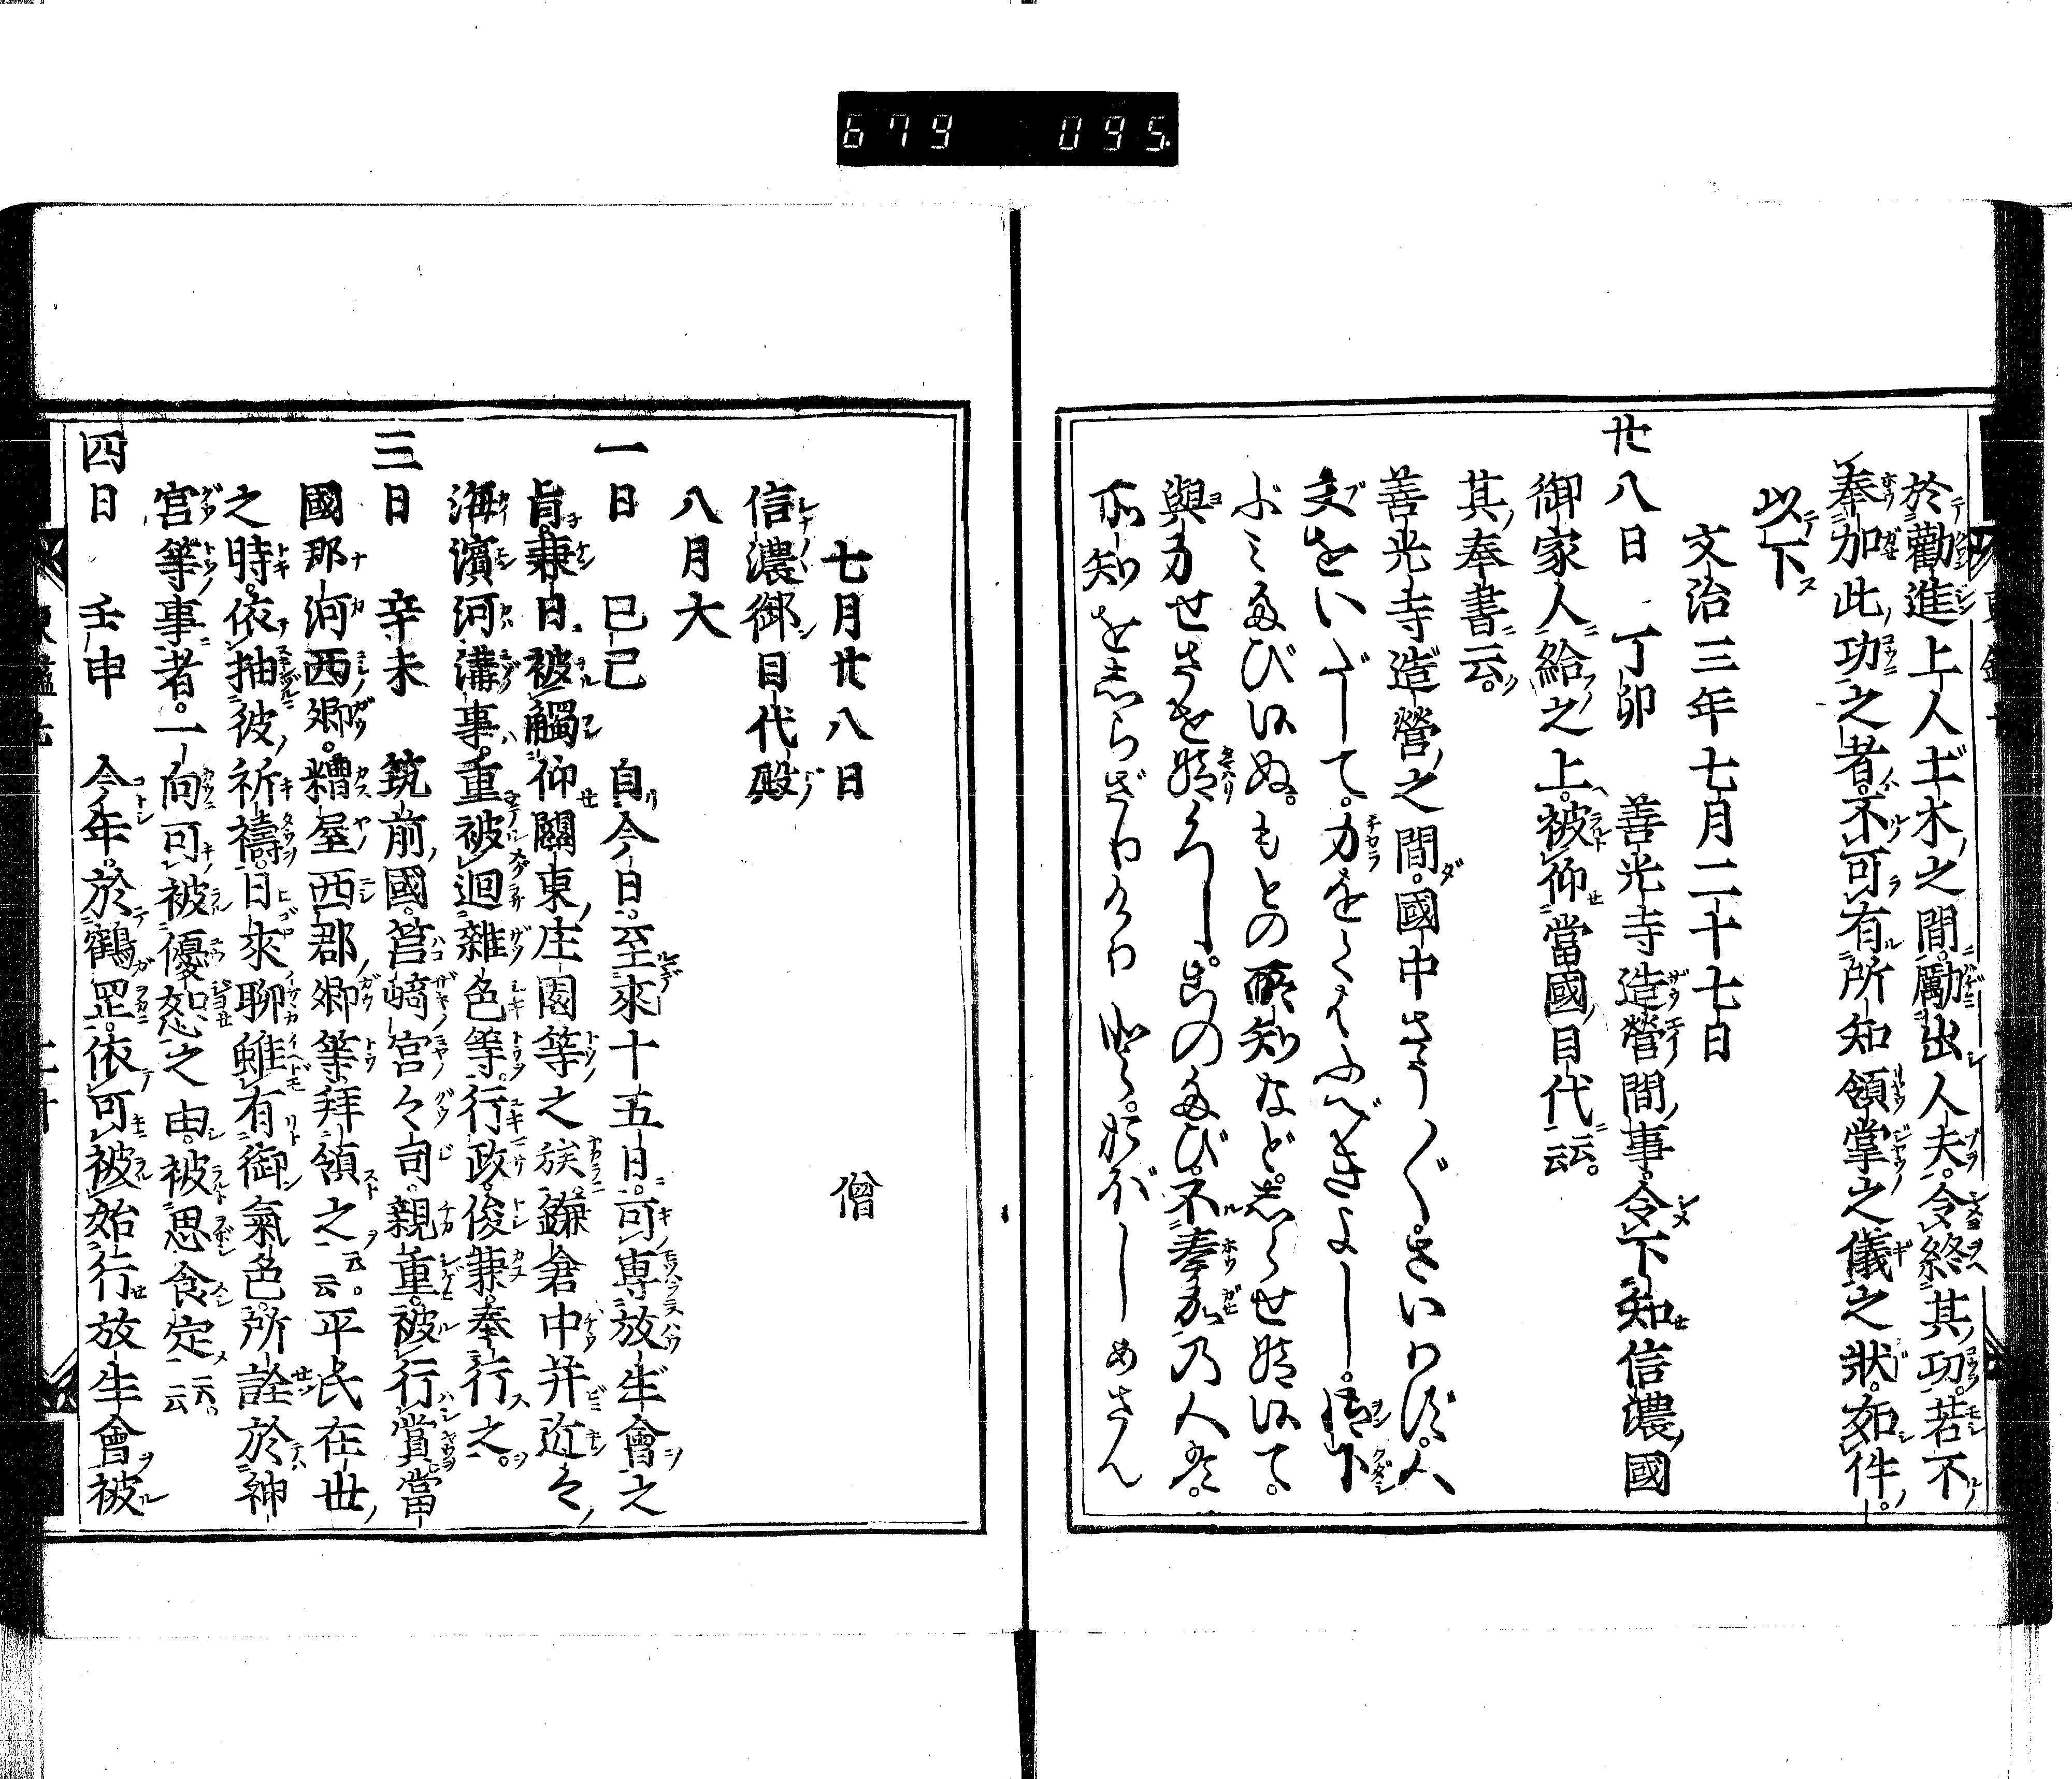 679 095.
於勸進上人土木之間勵出人夫。令終其功。若不
奉加此功之者。不可有所知領掌之儀之狀。如件。
以下
文治三年七月二十七日
廿八日 丁卯 善光寺造營間事。令下知信濃國
御家人給之上。被仰當國目代云云。
其奉書云。
善光寺造營之間。國中さう〳〵きいはず。人
夫をいだして。力をくはふべきよし。
ぶみたびぬ。もとの所知などしらせ給て。
與力せさせ給べし。このたび不奉加の人は。
所知をしらざりけりと。おぼしめさん
七月廿八日 僧
信濃御目代殿
八月大
一日 己巳 自今日。至來十五日。可專放生會之
旨。兼日被觸仰關東庄園等之族。鎌倉中并近々
海濱河溝事。重被廻雜色等。行政。俊兼奉行之。
三日 辛未 筑前國。筥崎宮々司。親重。被行賞。當
國那珂西鄉。糟屋西郡鄉等拜領之云云。平氏在世
之時。依抽彼祈禱。日來聊雖有御氣色。所詮於神
宮等事者。一向可被優恕之由。被思食定云云
四日 壬申 今年。於鶴岡。依可被始行放生會被